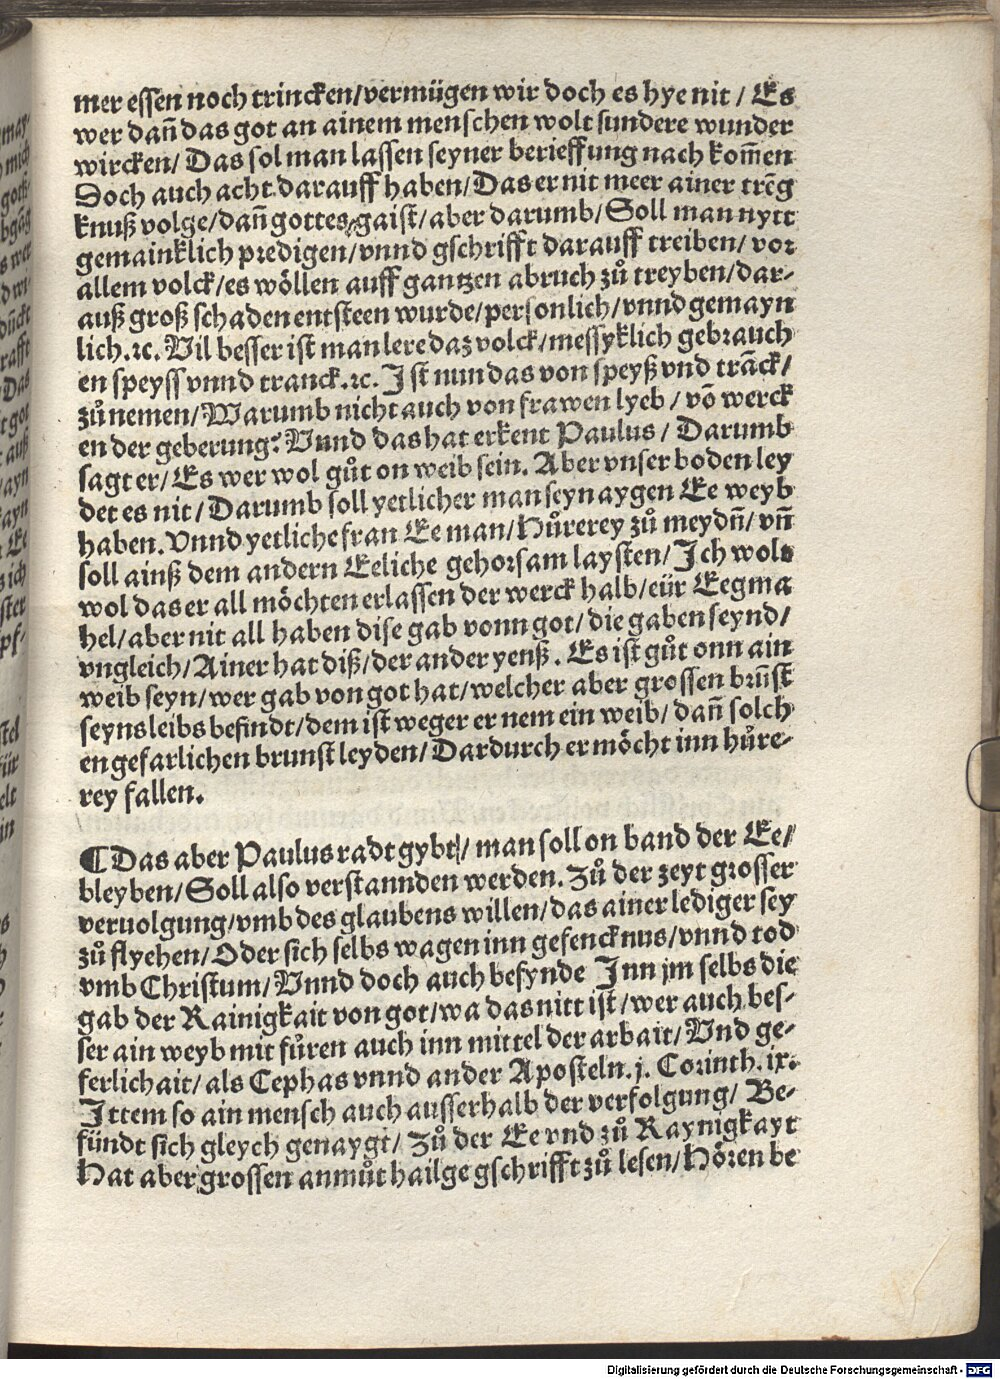 mer essen noch trincken/vermügen wir doch es hye nit / Es
wer dañ das got an ainem menschen wolt sundere wunder
wircken/ Das sol man lassen seyner berieffung nach kom̃en
Doch auch acht darauff haben/ Das er nit meer ainer trẽg
knuß volge/dañ gottes gaist/ aber darumb/ Soll man nytt
gemainklich predigen/vnnd gschrifft darauff treiben/ vor
allem volck/es wöllen auff gantzen abruch zů treyben/dar-
auß groß schaden entsteen wurde/personlich/vnnd gemayn
lich.ꝛc. Vil besser ist man lere daz volck/messyklich gebrauch
en speyss vnnd tranck.ꝛc. Ist nun das von speyß vnd trãck/
zů nemen/Warumb nicht auch von frawen lyeb / võ werck
en der geberung? Vnnd das hat erkent Paulus / Darumb
sagt er/ Es wer wol gůt on weib sein. Aber vnser boden ley
det es nit/ Darumb soll yetlicher man seyn aygen Ee weyb
haben. Vnnd yetliche fran Ee man/Hůrerey zů meydñ/ vñ
soll ainß dem andern Eeliche gehorsam laysten/ Ich wolt
wol das er all möchten erlassen der werck halb/eür Eegma
hel/aber nit all haben dise gab vonn got/ die gaben seynd/
vngleich/Ainer hat diß/der ander yenß. Es ist gůt onn ain
weib seyn/wer gab von got hat/welcher aber grossen brũst
seyns leibs befindt/dem ist weger er nem ein weib/ dañ solch
en gefarlichen brunst leyden/ Dardurch er möcht inn hůre-
rey fallen.
¶ Das aber Paulus radt gybt/ man soll on band der Ee/
bleyben/Soll also verstannden werden. Zů der zeyt grosser
veruolgung/vmb des glaubens willen/das ainer lediger sey
zů flyehen/Oder sich selbs wagen inn gefencknus/vnnd tod
vmb Christum/Vnnd doch auch befynde Inn jm selbs die
gab der Rainigkait von got/wa das nitt ist/wer auch bes-
ser ain weyb mit fůren auch inn mittel der arbait/ Vnd ge-
ferlichait/ als Cephas vnnd ander Aposteln. j. Corinth. ix.
Ittem so ain mensch auch ausserhalb der verfolgung/ Be-
fündt sich gleych genaygt/ Zů der Ee vnd zů Raynigkayt
Hat aber grossen anmůt hailge gschrifft zů lesen/Hören be
Digitalisierung gefördert durch die Deutsche Forschungsgemeinschaft - DFG